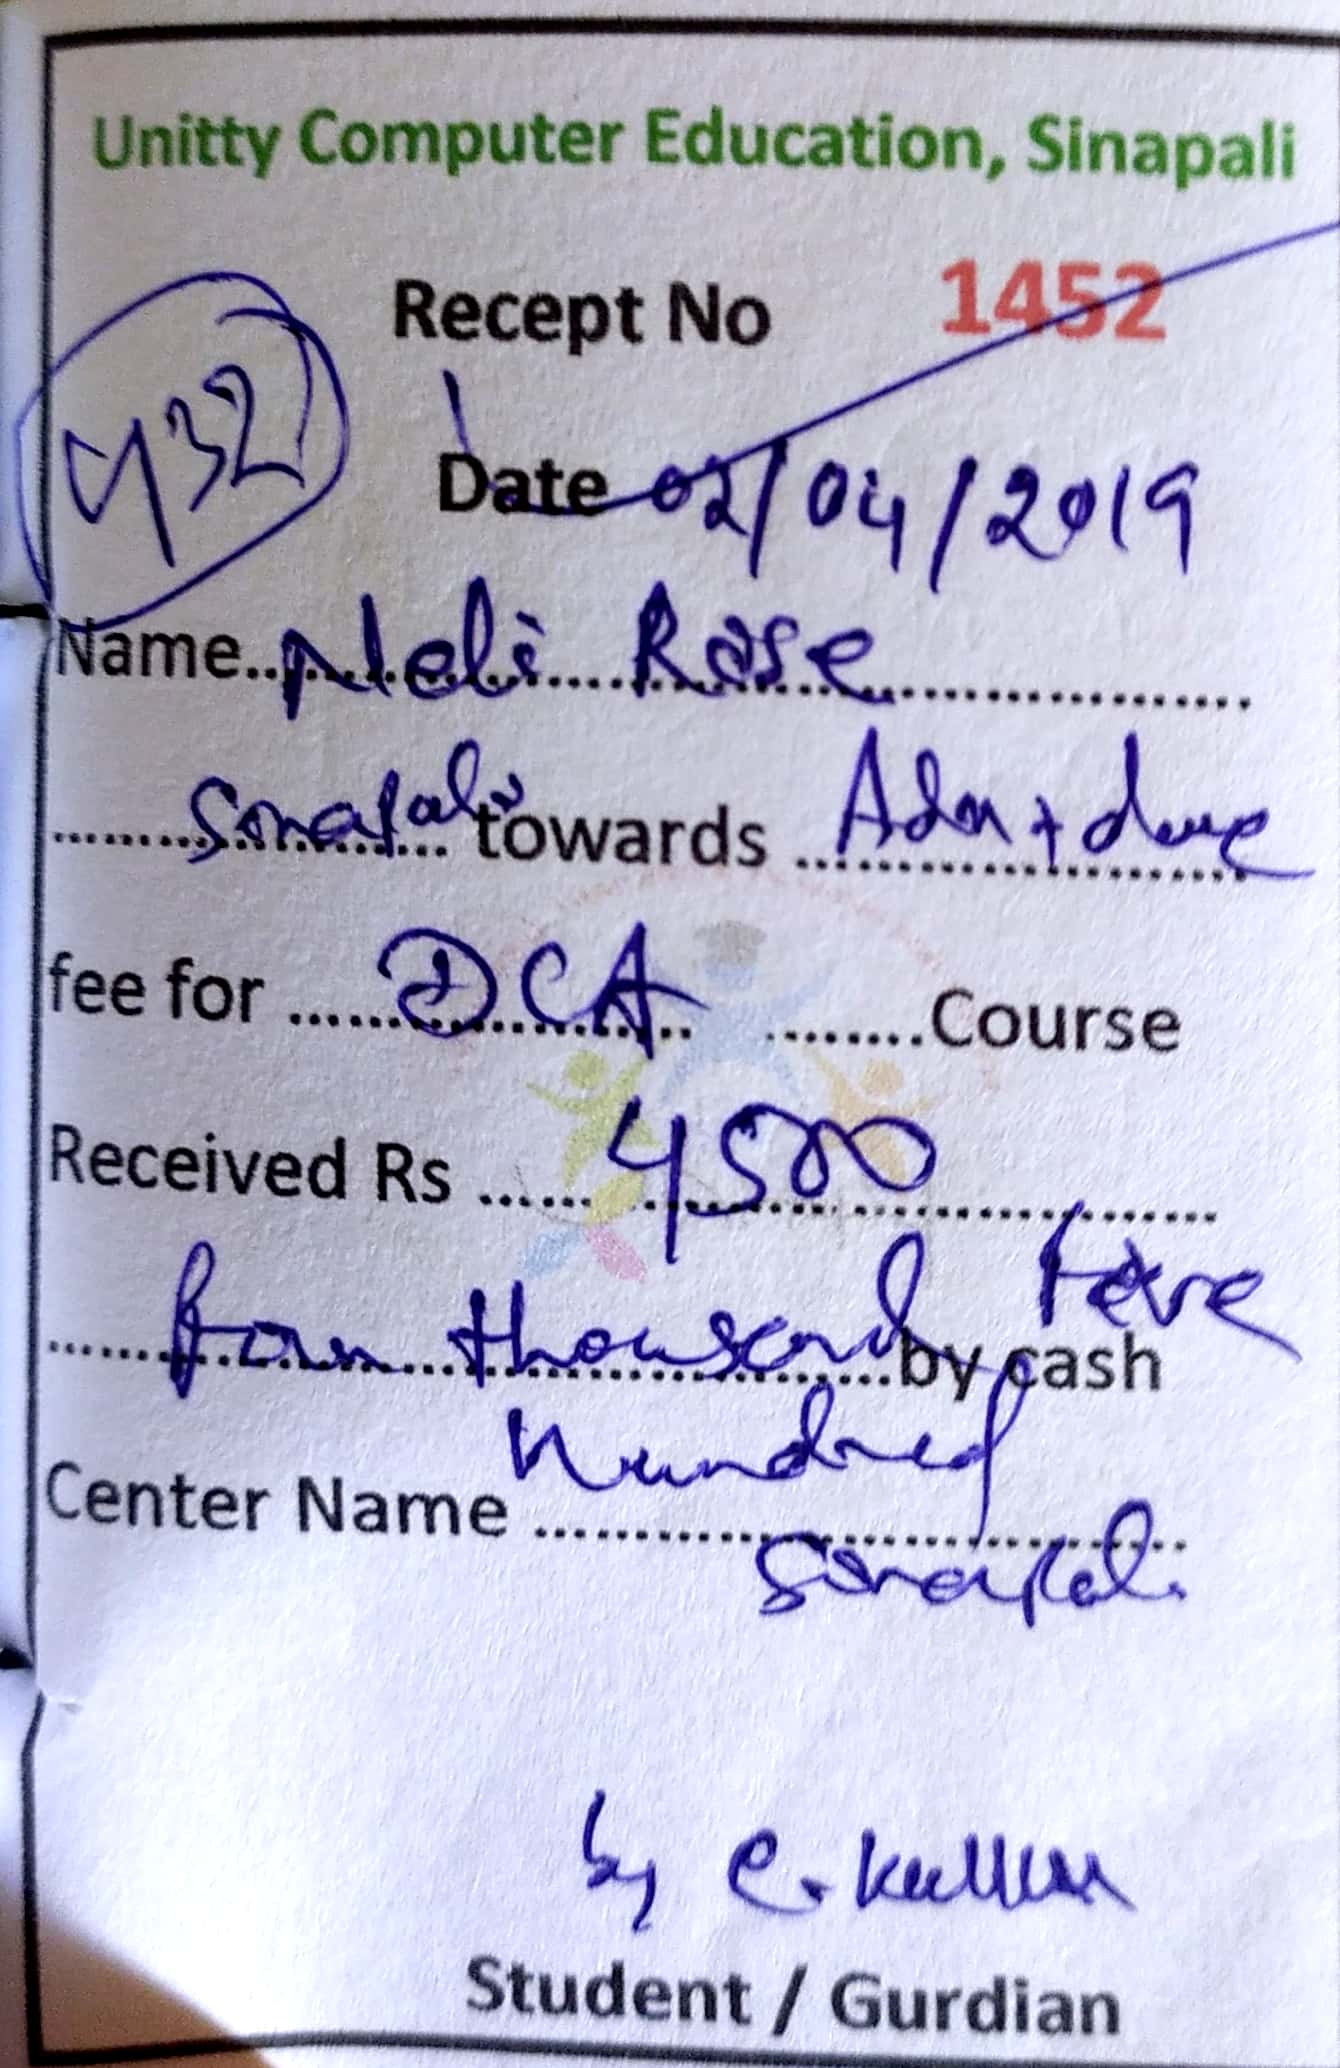 Unitty Computer Education, Sinapali
Recept No 1452
432
Date 02/04/2019
Name..Neli Rose
Sinapali towards Adn + due
fee for DCA Course
Received Rs 4500
four thousand five
by cash
hundred
Center Name
Sinapali
by C. Kullu
Student / Gurdian